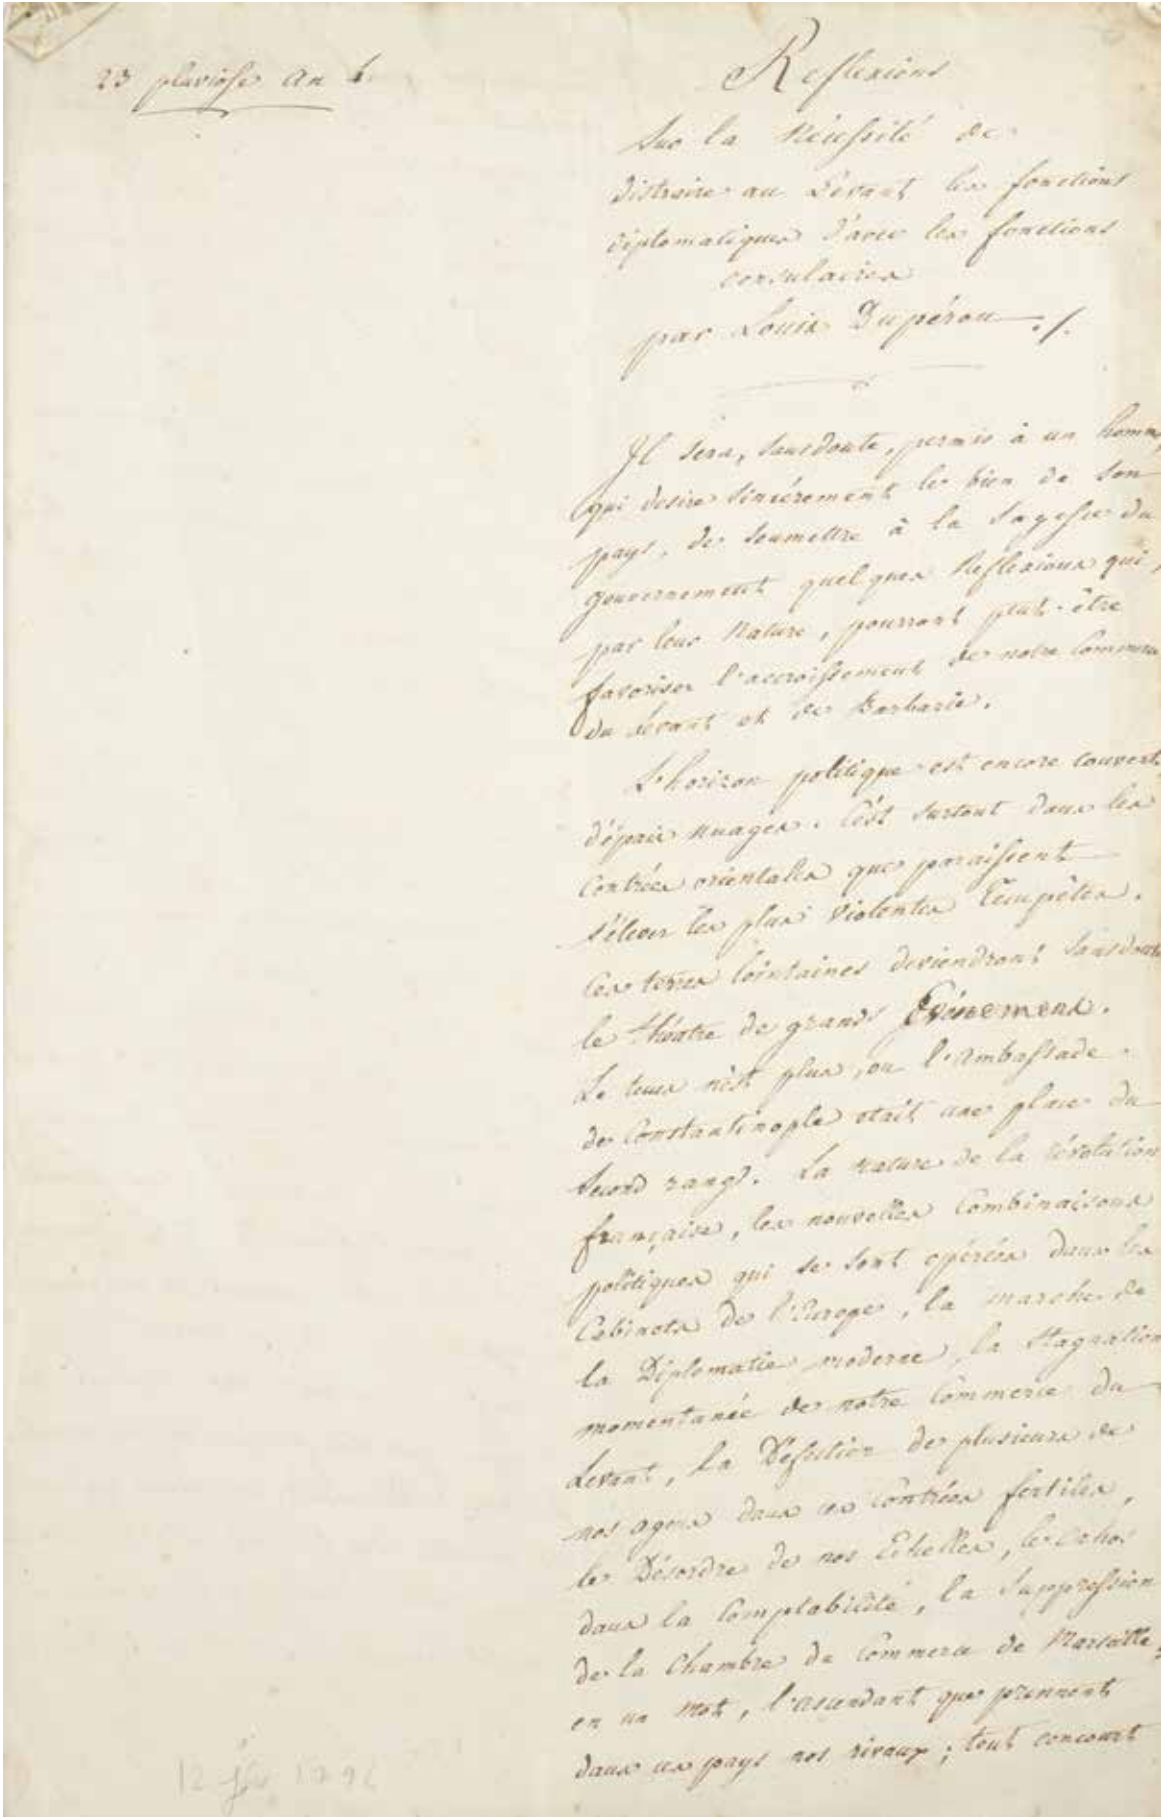 23 pluviose an 4.
Reflexions
Sur la Nécessité de
distraire au Lévant les fonctions
diplomatiques d'avec les fonctions
consulaires
par Louis Dupérou ./.
Il sera, sans doute, permis à un homme,
qui desire sincérement le bien de son
pays, de soumettre à la sagesse du
gouvernement quelques Réflexions qui,
par leur Nature, pourront peut-être
favoriser l'accroissement de notre Commerce
du Lévant et de Barbarie.
L'horizon politique est encore couvert
d'épais nuages. C'est surtout dans les
Contrées orientales que paraissent
s'élever les plus violentes Tempêtes.
Ces terres lointaines deviendront sans doute
le théatre de grands Evénemens.
Le tems n'est plus, ou l'ambassade
de Constantinople etait une place du
second rang. La nature de la révolution
française, les nouvelles Combinaisons
politiques qui se sont opérées dans les
Cabinets de l'Europe, la marche de
la Diplomatie moderne, la stagnation
momentanée de notre Commerce du
Levant, la Défection de plusieurs de
nos agens dans ces contrées fertiles,
le Désordre de nos Echelles, le cahos
dans la Comptabilité, la Suppression
de la Chambre de Commerce de Marseille,
en un mot, l'ascendant que prennent
dans ces pays nos rivaux ; tout concourt